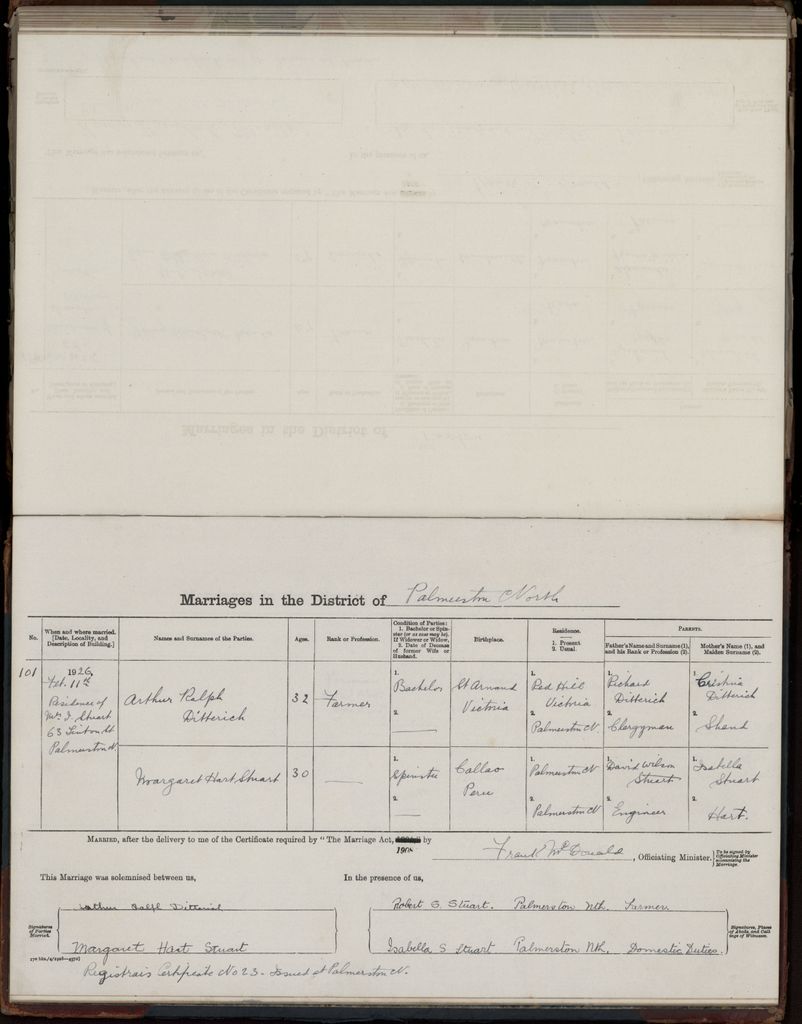 Marriages in the District of Palmerston North
No.
When and where married. [Date, Locality, and Description of Building.]
Names and Surnames of the Parties.
Ages.
Rank or Profession.
Condition of Parties: 1. Bachelor or Spinster (or as case may be). If Widower or Widow, 2. Date of Decease of former Wife or Husband.
Birthplace.
Residence. 1. Present. 2. Usual.
Parents.
Father's Name and Surname (1), and his Rank or Profession (2).
Mother's Name (1), and Maiden Surname (2).
101
1926
Feb. 11th
Residence of
Mrs I. Stuart
63 Linton St
Palmerston N.
Arthur Ralph
Ditterich
32
Farmer
1.
Bachelor
2.
St Arnaud
Victoria
1.
Red Hill
Victoria
2.
Palmerston N.
1.
Richard
Ditterich
2.
Clergyman
1.
Cristina
Ditterich
2.
Shand
Margaret Hart Stuart
30
1.
Spinster
2.
Callao
Peru
1.
Palmerston N
2.
Palmerston N
1.
David Wilson
Stuart
2.
Engineer
1.
Isabella
Stuart
2.
Hart.
Married, after the delivery to me of the Certificate required by "The Marriage Act, 1908 by
Frank McDonald, Officiating Minister. [To be signed by Officiating Minister solemnizing the Marriage.
This Marriage was solemnised between us,
In the presence of us,
Signatures of Parties Married.
Arthur Ralph Ditterich
Margaret Hart Stuart
Robert S. Stuart. Palmerston Nth. Farmer
Isabella S Stuart Palmerston Nth. Domestic Duties.
Signatures, Places of Abode, and Callings of Witnesses.
Registrar's Certificate No 23 - Issued at Palmerston N.